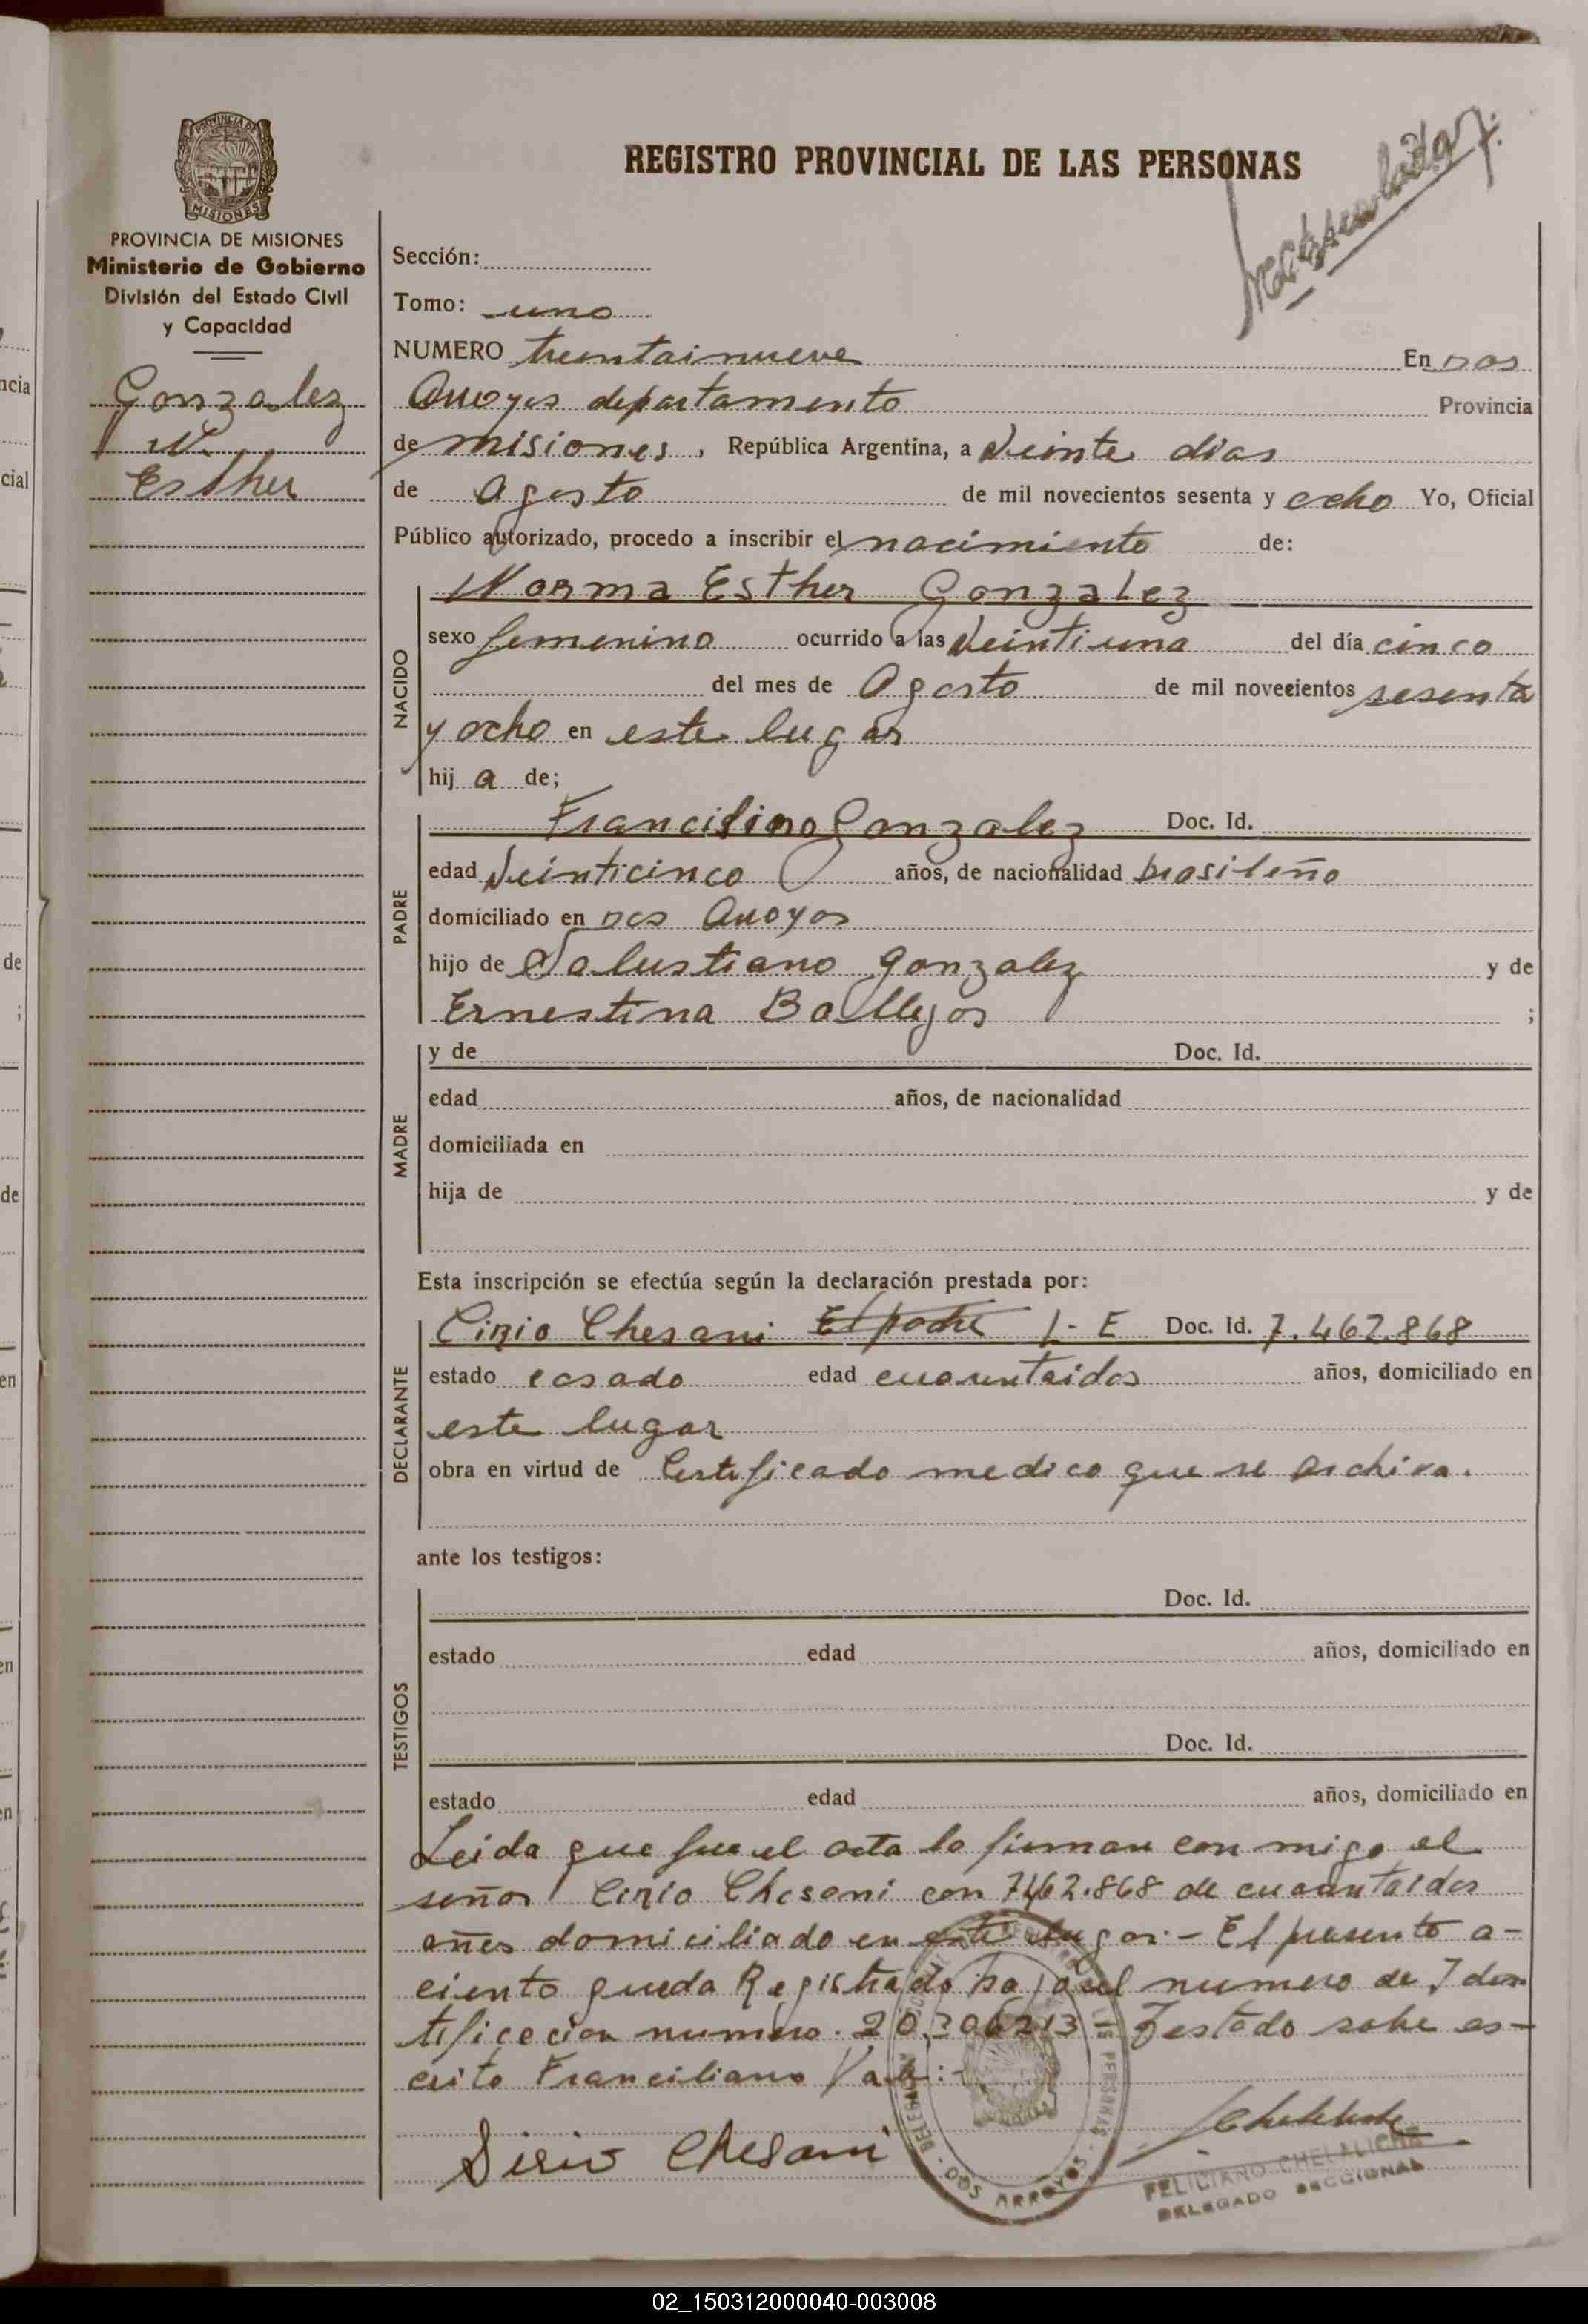 REGISTRO PROVINCIAL DE LAS PERSONAS
PROVINCIA DE
MISIONES
PROVINCIA DE MISIONES
Ministerio de Gobierno
División del Estado Civil
y Capacidad
Gonzalez
N.
Esther
Sección:
Tomo: uno
NUMERO treintainueve En Dos
Arroyos departamento Provincia
de misiones, República Argentina, a Veinte dias
de Agosto de mil novecientos sesenta y ocho Yo, Oficial
Público autorizado, procedo a inscribir el nacimiento de:
NACIDO
Norma Esther Gonzalez
sexo femenino ocurrido a las Veintiuna del día cinco
del mes de Agosto de mil novecientos sesenta
y ocho en este lugar
hij a de;
PADRE
Franciliano Gonzalez Doc. Id.
edad Veinticinco años, de nacionalidad brasileño
domiciliado en Dos Arroyos
hijo de Salustiano Gonzalez y de
Ernestina Ballejos ;
MADRE
y de Doc. Id.
edad años, de nacionalidad
domiciliada en
hija de y de
Esta inscripción se efectúa según la declaración prestada por:
DECLARANTE
Cirio Chesani El padre L- E Doc. Id. 7.462.868
estado casado edad cuarentaidos años, domiciliado en
este lugar
obra en virtud de Certificado medico que se archiva.
ante los testigos:
TESTIGOS
Doc. Id.
estado edad años, domiciliado en
Doc. Id.
estado edad años, domiciliado en
Leida que fue el acta la firman con migo el
señor Cirio Chesani con 7462.868 de cuarentaidos
años domiciliado en este lugar.- El presente a-
ciento queda Registrado bajo el numero de Iden
tificacion numero. 20.306213 Testado sobre es-
crito Franciliano Vale:-
Sirio Chesani
DOS ARROYOS
FELICIANO CHELALICHE
DELEGADO SECCIONAL
02_150312000040-003008